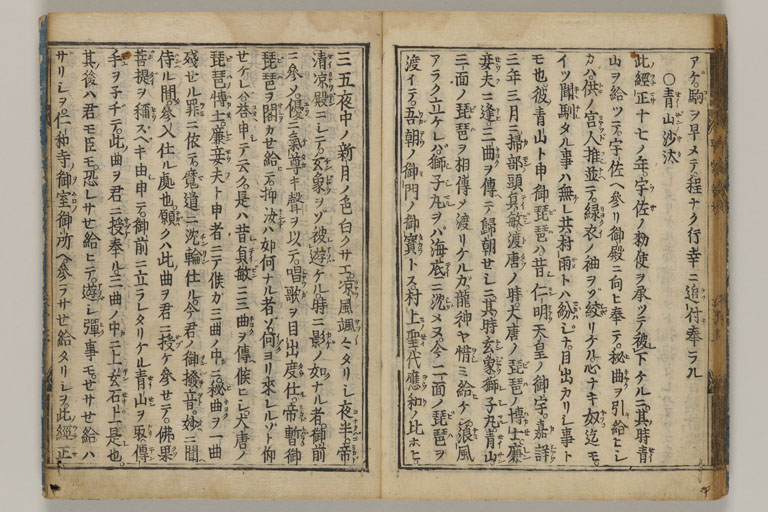 アケ駒ヲ早メテ程ナク行幸ニ追付奉ラル
○青山沙汰
此經正十七ノ年宇佐ノ勅使ヲ承ツテ被下ケルニ其時青
山ヲ給ツテ宇佐ヘ参リ御殿ニ向ヒ奉テ秘曲ヲ引給ヒシ
カハ供ノ宮人推並テ緑衣ノ袖ヲソ絞リケル心ナキ奴迄モ
イツ聞馴タル事ハ無レ共村雨トハ紛シナ目出カリシ事ト
モ也彼青山ト申御琵琶ハ昔仁明天皇ノ御字嘉詳
三年三月ニ掃部頭貞敏渡唐ノ時大唐ノ琵琶ノ博士廉
妾夫ニ逢三曲ヲ傳テ歸朝セシニ其時玄象獅子丸青山
三面ノ琵琶ヲ相傳メ渡リケルカ龍神ヤ惜ミ給ケン浪風
アラク立ケレハ獅子丸ヲハ海底ニ沈メヌ今二面ノ琵琶ヲ
渡イテ吾朝ノ御門ノ御寶トス村上聖代應和ノ比ホヒ
三五夜中ノ新月ノ色白クサエ凉風颯々タリシ夜半ニ帝
清凉殿ニシテ玄象ヲソ被遊ケル時ニ影ノ如ナル者御前
ニ参ノ優ニ氣尊キ聲ヲ以テ唱歌ヲ目出度仕帝暫御
琵琶ヲ閣カせ給テ抑汝ハ如何ナル者ソ何ヨリ來レルソト仰
せケレハ答申テ云ク是ハ昔貞敏ニ三曲ヲ傳候ヒシ大唐ノ
琵琶ノ博士廉妾夫ト申者ニテ候カ三曲ノ中ニ秘曲ヲ一曲
殘せル罪ニ依テ魔道ニ沈輪仕ル今君ノ御撥音妙ニ聞
侍ル間参入仕ル處也願クハ此曲ヲ君ニ授ケ参せテ佛果
菩提ヲ稱スヘキ由申テ御前ニ立ラレタリケル青山ヲ取傳
手ヲ子チテ此曲ヲ君ニ授奉ル三曲ノ中ニ上玄石上是也
其後ハ君モ臣モ恐レサせ給ヒテ遊シ彈事モせサせ給ハ
サリシヲ仁和寺御室御所ヘ参ラサせ給タリシヲ此經正